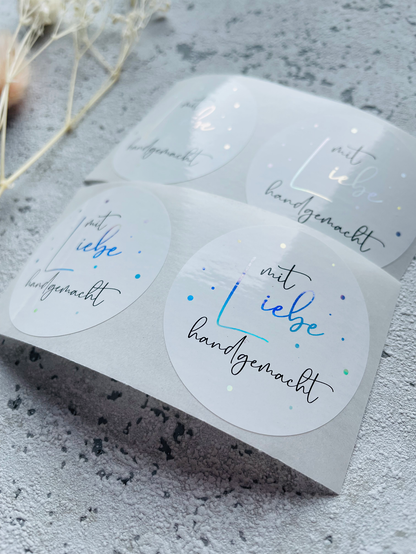 be
handgemacht
mit
Liebe
handgemacht
mit
Liebe
handgemacht
mit
Liebe
handgemacht